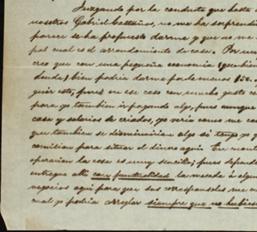 Juzgando por la conducta que hasta
nosotros Gabriel no me ha sorprendido
parece se ha propuesto darme y que no
pal cual es el arrendamiento de casa. Por
creo que con una pequeña economia
bien podria darme por lo menos 150.
pues en ese caso con mucho gusto
para yo tambien ir pagando algo, pues aunque
casa y salarios de criados, ya veria como me
que tambien se disminuiria algo si tengo yo
comision para situar el dinero aqui. En cuanto
operacion la cosa es muy sencilla; pues
entregue alli con puntualidad la mesada á
negocios aqui para que sus corresponsales me
cual yo podria arreglar siempre que no hubiese